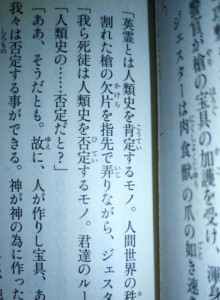 の宝具の加護を受け、
、ジェスターは肉食獣の爪の如き速
「英霊とは人類史を肯定するモノ。人間世界の秩
割れた槍の欠片を指先で弄りながら、ジェス
「我ら死徒は人類史を否定するモノ。君達のルー
「人類史の……否定だと？」
「ああ、そうだとも。故に、人が作りし宝具、あ
我々は否定する事ができる。神が神の為に作った